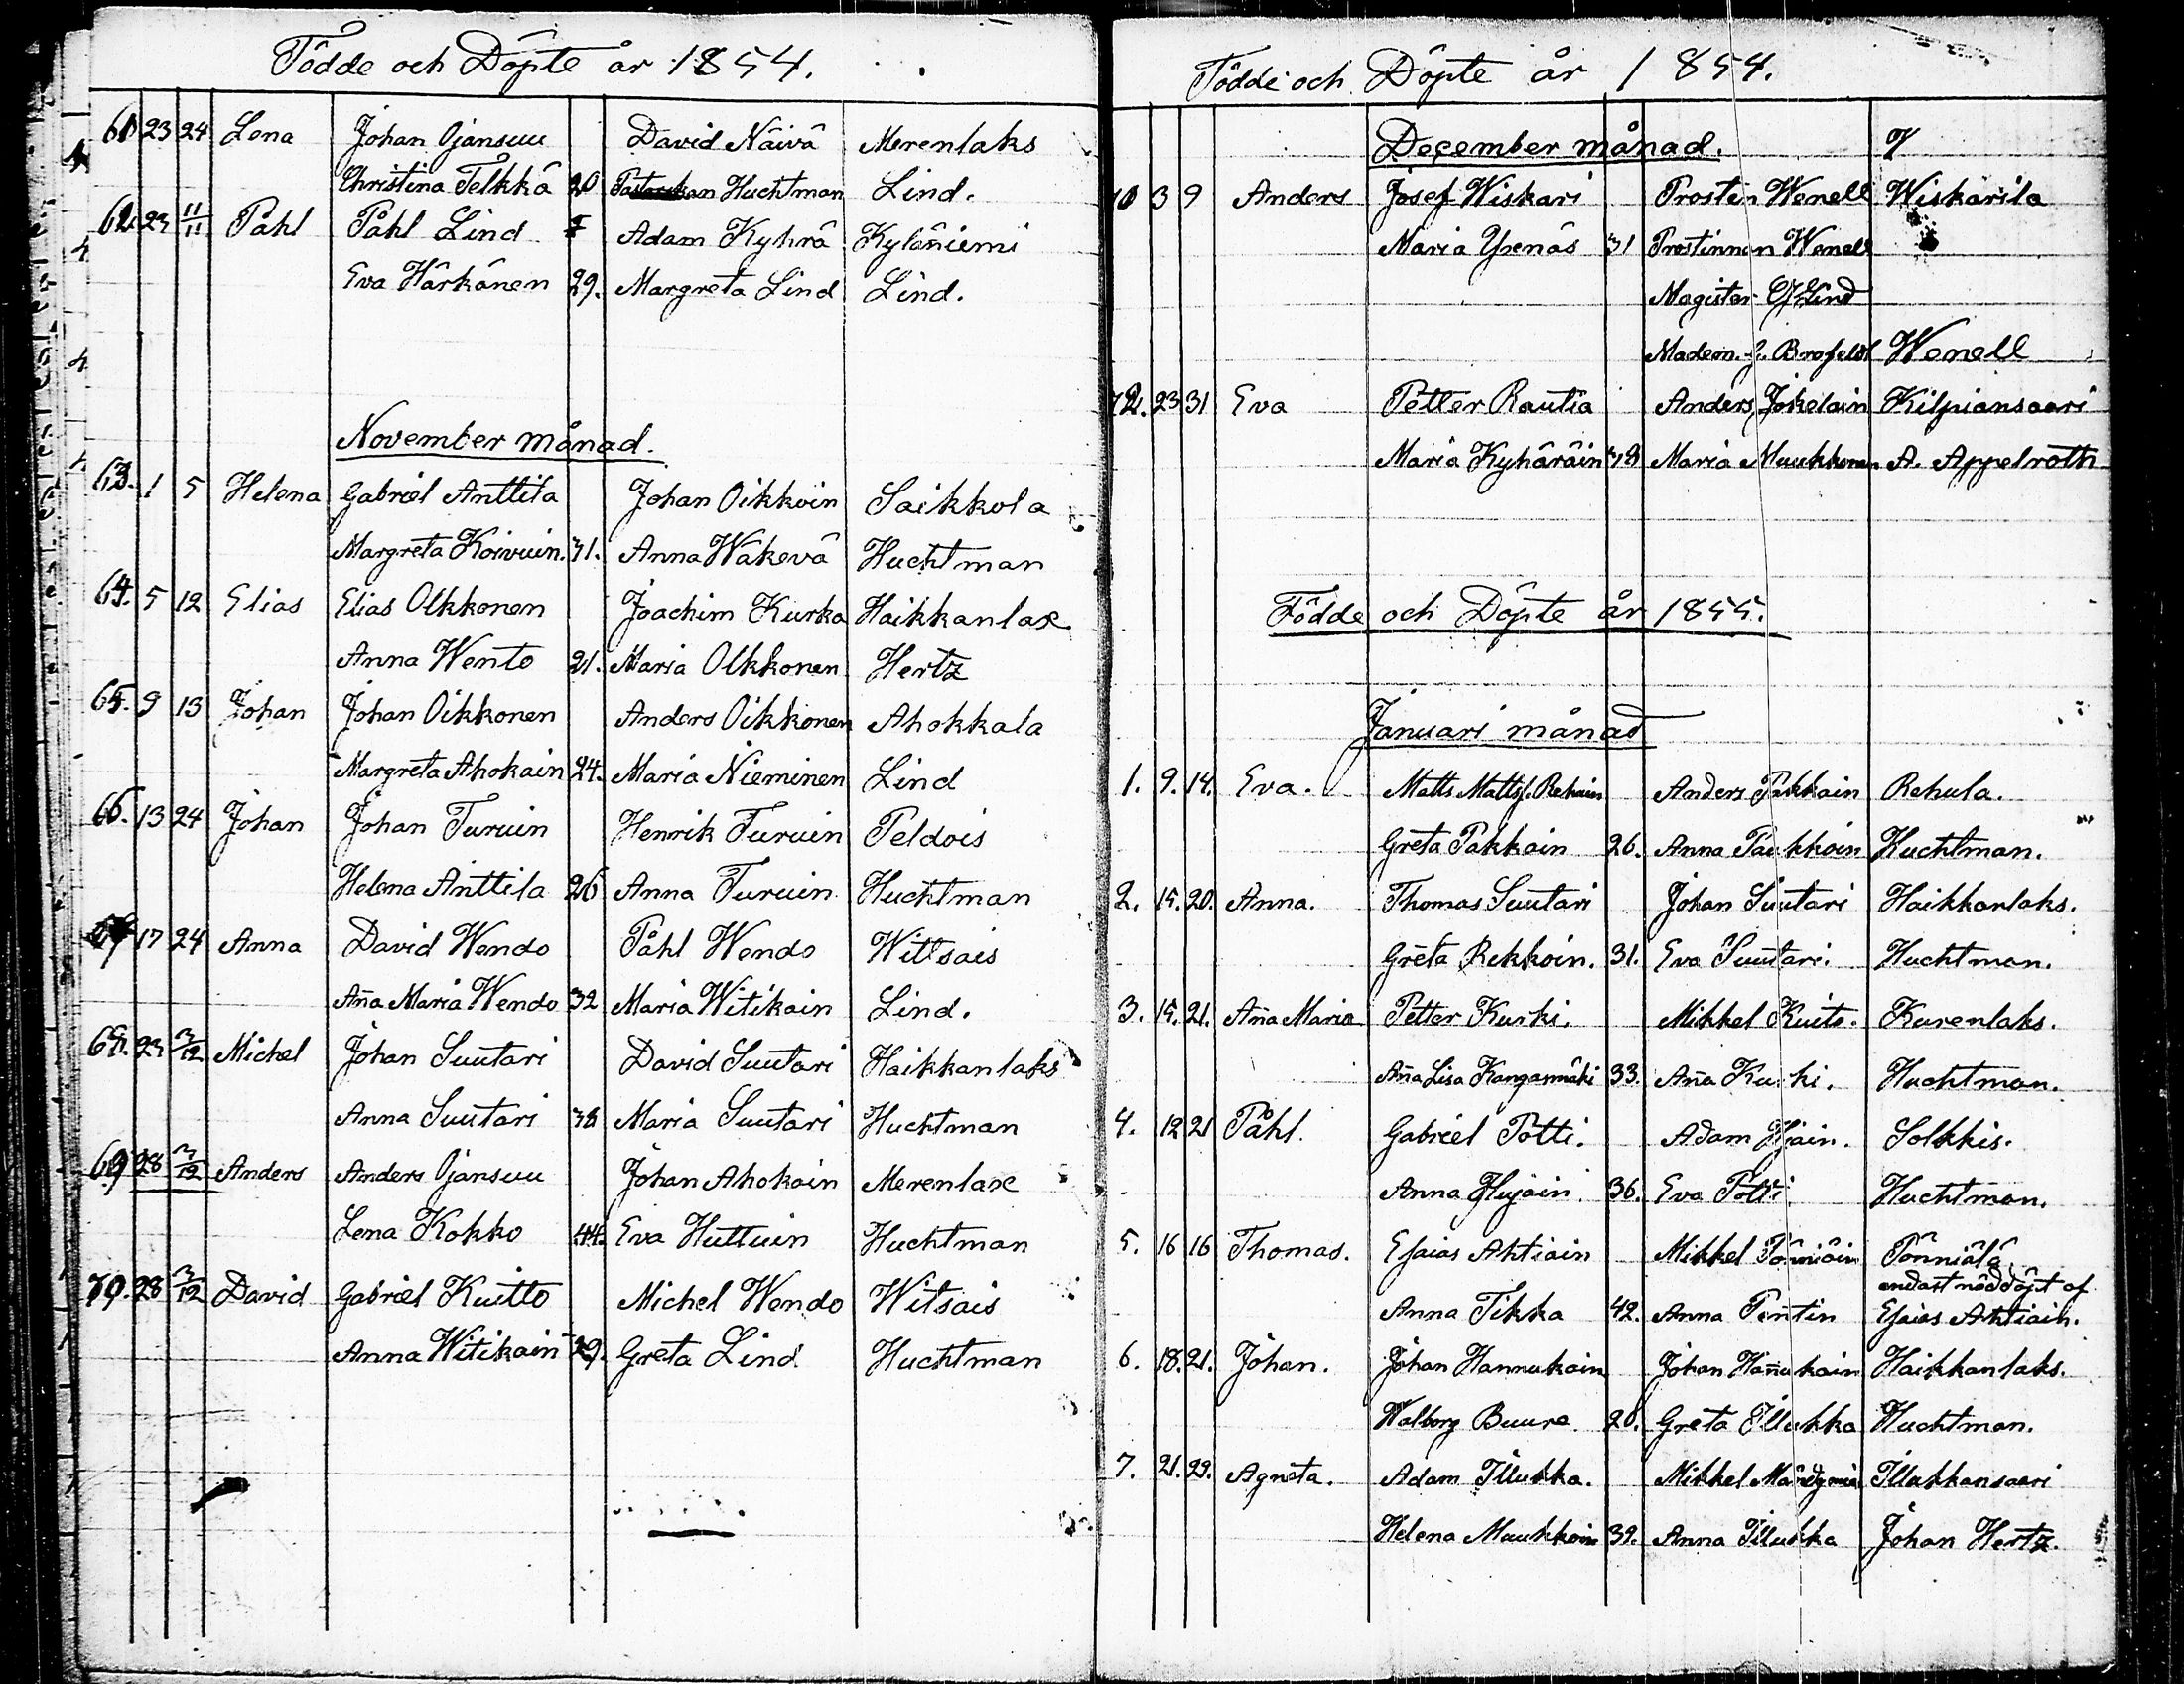 Födde och Döpte år 1854.
61 23 24 Lena Johan Ojansuu David Näivä Merenlaks
Christina Telkkä 20 Huchtman Lind.
62. 23 11/11 Påhl Påhl Lind Adam Kyhrä Kyläniemi
Eva Härkänen 29. Margreta Lind Lind.
November månad.
63. 1 5 Helena Gabriel Anttila Johan Oikkoin Saikkola
Margreta Koivuin. 31. Anna Wäkevä Huchtman
64. 5 12 Elias Elias Olkkonen Joachim Kurka Haikkanlax
Anna Wento 21. Maria Olkkonen Hertz
65. 9 13 Johan Johan Oikkonen Anders Oikkonen Ahokkala
Margreta Ahokain 24. Maria Nieminen Lind
66. 13 24 Johan Johan Turuin Henrik Turuin Peldois
Helena Anttila 26 Anna Turuin Huchtman
17 24 Anna David Wendo Påhl Wendo Wittsais
Aña Maria Wendo 32 Maria Witikain Lind.
23 3/12 Michel Johan Suutari David Suutari Haikkanlaks
Anna Suutari 38 Maria Suutari Huchtman
69 28 3/12 Anders Anders Ojansuu Johan Ahokain Merenlax
Lena Kokko 44. Eva Huttuin Huchtman
70. 28 3/12 David Gabriel Kuitto Michel Wendo Witsais
Anna Witikain 39. Greta Lind Huchtman
Födde och Döpte år 1854.
December månad.
3 9 Anders Josef Wiskari Prosten Wenell Wiskarila
Maria Ysenäs 31 Prostinnan Wenell
Magister Lind
Madem. J. Brofeldt Wenell
72. 23 31 Eva Petter Rautia Anders Jokelain Kilpiansaari
Maria Kyhäräin 38 Maria Muukkonen A. Appelroth
Födde och Döpte år 1855.
Januari månad
1. 9. 14. Eva. Matts Mattsf. Rehuin Anders Pakkain Rehula.
Greta Pakkain 26. Anna Paukkoin Huchtman.
2. 15. 20. Anna. Thomas Suutari Johan Suutari Haikkanlaks.
Greta Rekkoin. 31. Eva Suutari. Huchtman.
3. 15. 21. Aña Maria Petter Kurki. Mikkel Kuito. Kurenlaks.
Aña Lisa Kangasmäki 33. Aña Kurki. Huchtman.
4. 12 21 Påhl. Gabriel Potti. Adam Hjain. Solkkis.
Anna Hujain. 36. Eva Potti. Huchtman.
5. 16 16 Thomas. Esaias Ahtiain Mikkel Tönniäin Tönniälä
endast nöddöpt af
Anna Tikka 42. Anna Pentin Esaias Ahtiain.
6. 18. 21. Johan. Johan Hannukain Johan Hañukain Haikkanlaks.
Walborg Buure 28. Greta Illukka Huchtman.
7. 21. 29. Agneta. Adam Illukka. Mikkel Illukkansaari
Helena Muukkoin 39. Anna Illukka Johan Hertz.